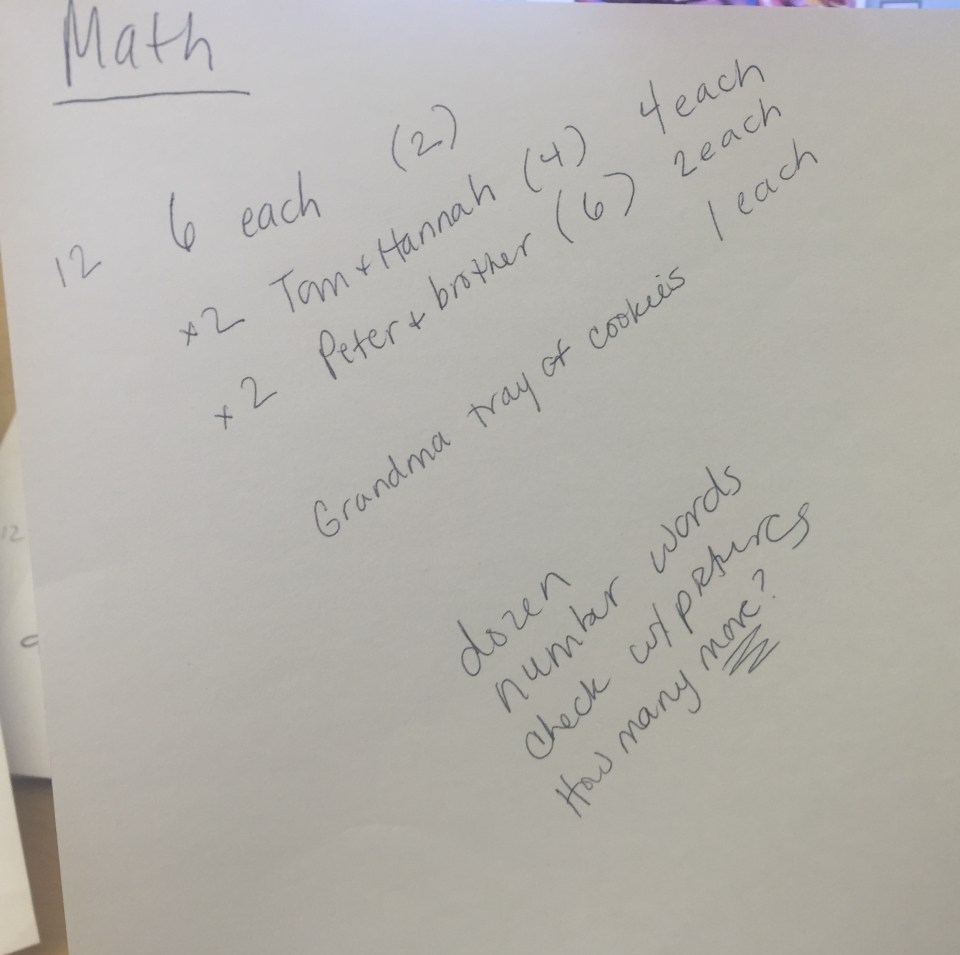 Math
12 6 each (2)
+2 Tom + Hannah (4) 4 each
+2 Peter + brother (6) 2 each
Grandma tray of cookies 1 each
dozen
number words
check w/ pictures
How many more?
12